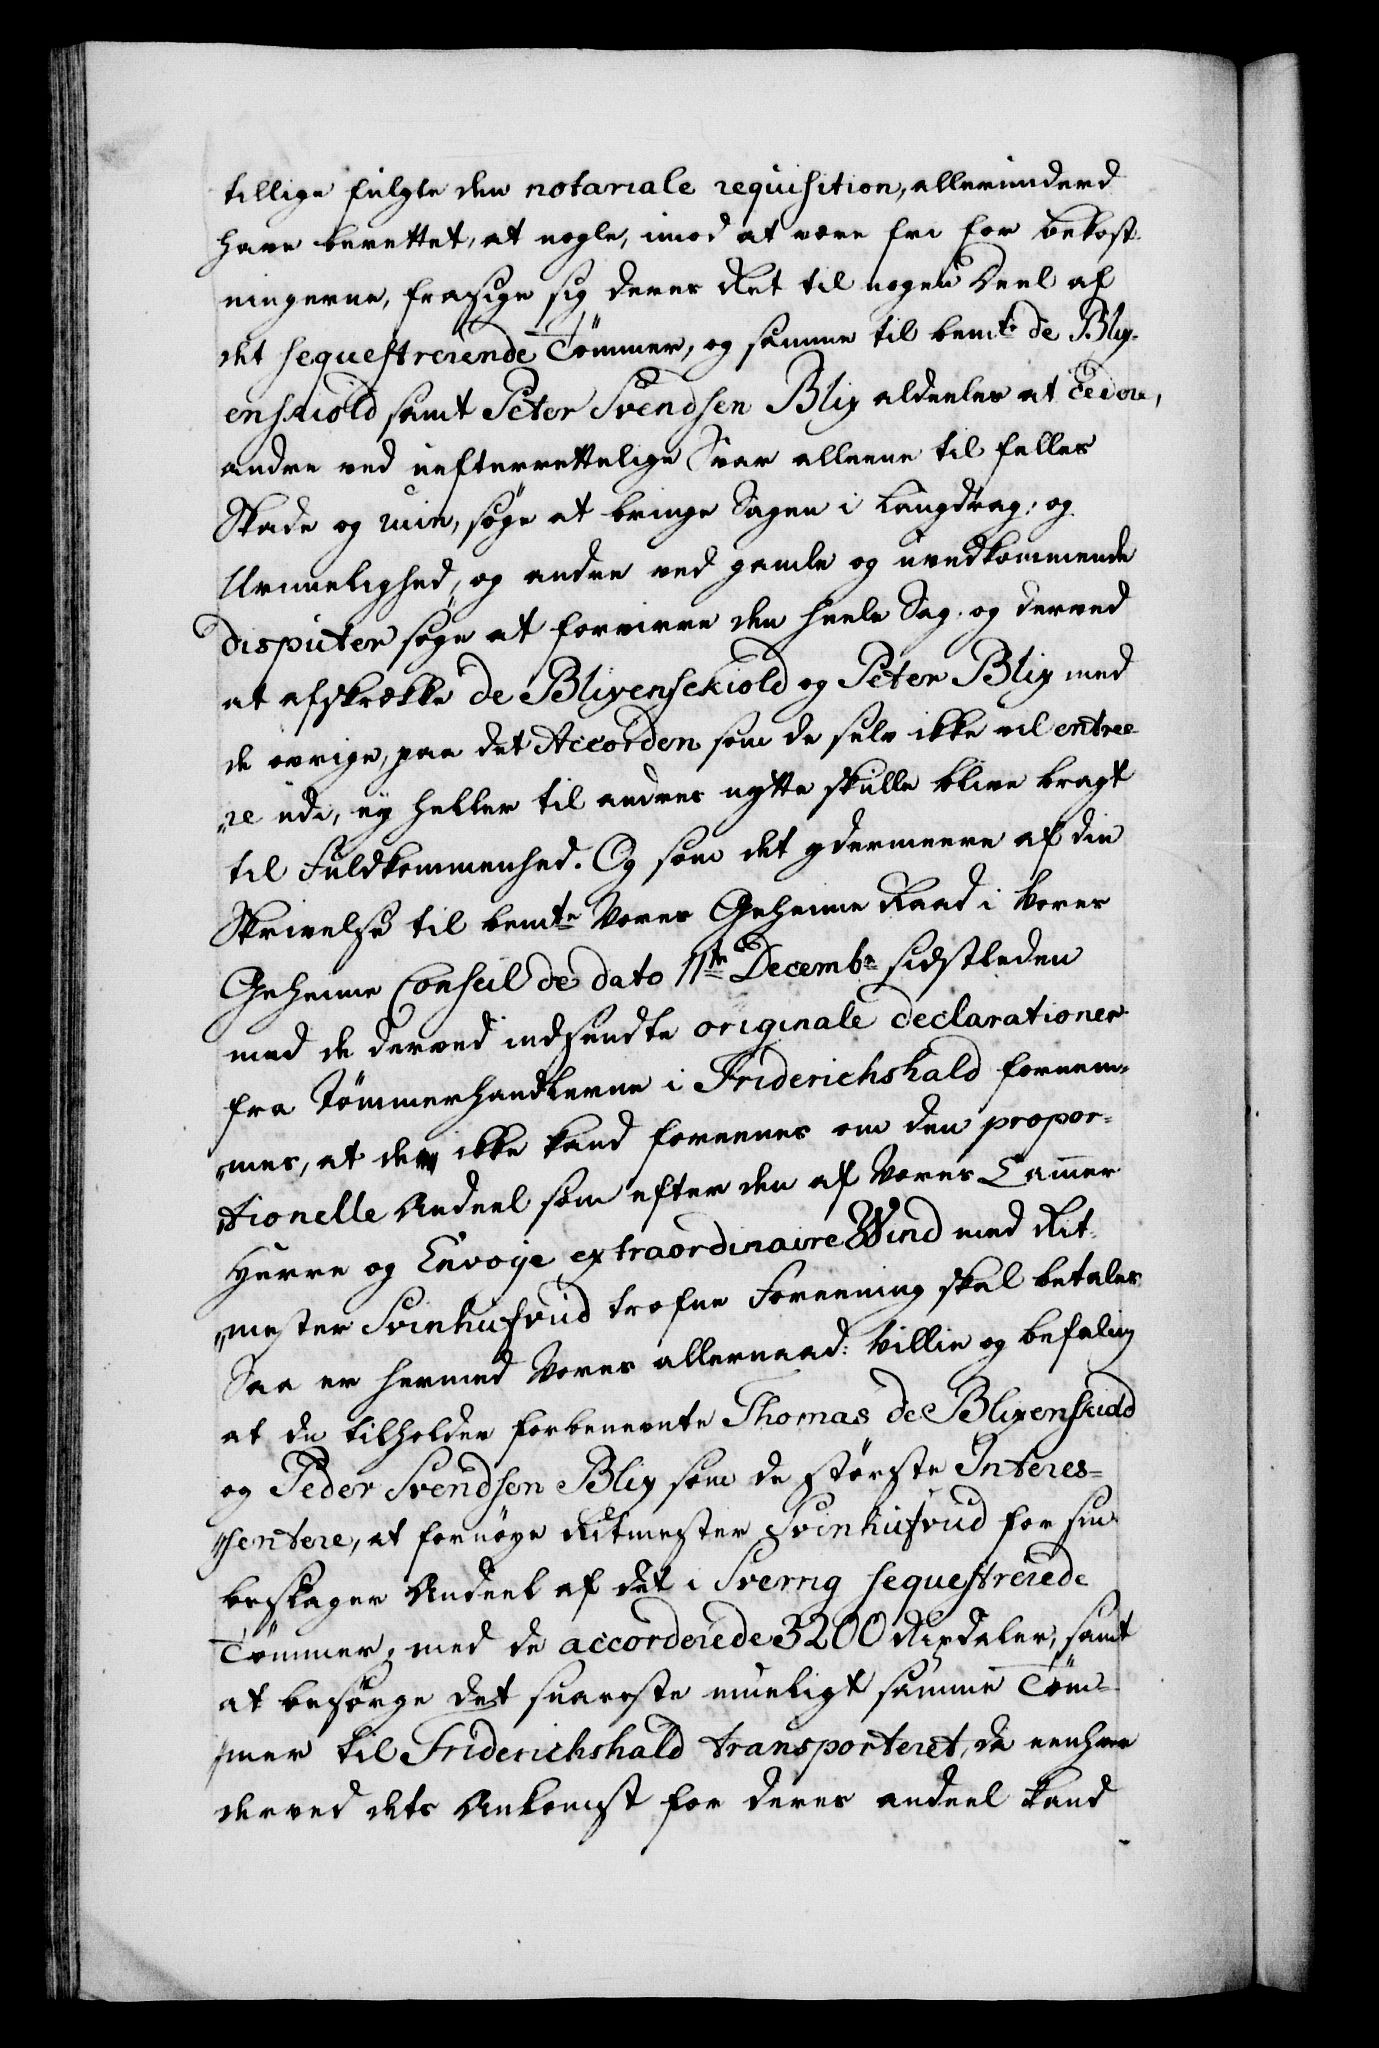 tillige fulgte den notariale requisition, allerunderd
have berettet, at nogle, imod at være fri for bekost-
ningerne, frasige sig deres Ret til nogen Deel af
det sequestrerende Tömmer, og samme til bemte de Blix-
enskiold samt Peter Svendsen Blix aldeeles at Cedere,
andre ved uefterrettelige Svar alleene til felles
Skade og ruin, søge at bringe Sagen i Langdrag, og
Urimelighed, og andre ved gamle og uvedkommende
disputer søge at forvirre den heele Sag, og derved
at afskrække de Blixenschiold og Peter Blix med
de øvrige, paa det Accorden som de selv ikke vil entree
re udi, ey heller til andres nytte skulle blive bragt
til Fuldkommenhed. Og som det ydermeere af din
Skrivelse til bemte Vores Geheime Raad i Vores
Geheime Conseil de dato 11te Decembr sidstleden
med de derved indsendte originale declarationer
fra Tømmerhandlerne i Friderichshald fornem-
mes, at de ikke kand foreenes om den propor-
tionelle Andeel som efter den af Vores Cammer
Herre og Envoye extraordinaire Wind med Rit-
mester Svinhufvud trofne Foreening skal betales
Saa er hermed Vores allernaad: Villie og befaling
at du tilholder forbenevnte Thomas de Blixenskiold
og Peder Svendsen Blix som de største Interes-
sentere, at fornøye Ritmester Svinhufvud for sin
beslagne Andeel af det i Sverrig sequestrerede
Tömmer, med de accorderede 3200 Rixdaler, samt
at besørge det snareste mueligt samme Töm-
mer til Friderichshald transporteret, da eenhver
derved dets Ankomst for deres andeel kand